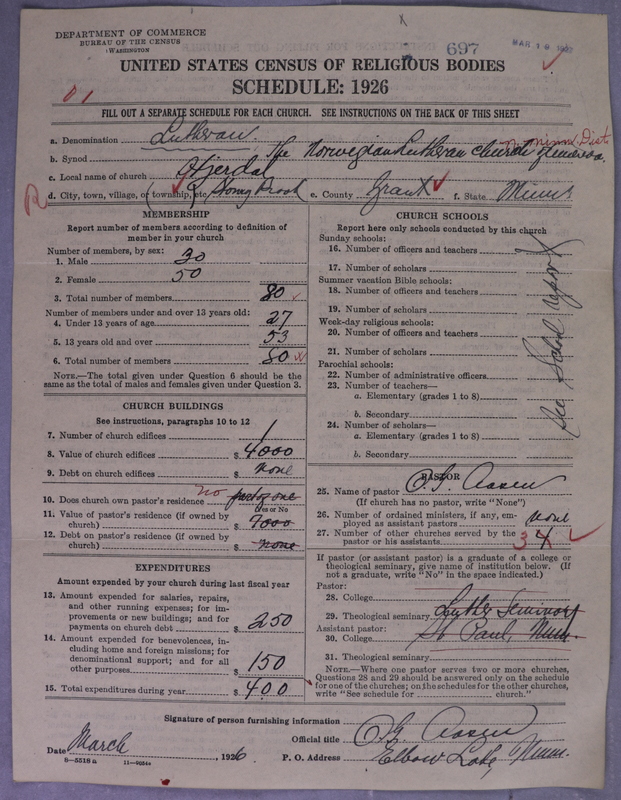 DEPARTMENT OF COMMERCE
BUREAU OF THE CENSUS
WASHINGTON
697
MAR 19
UNITED STATES CENSUS OF RELIGIOUS BODIES
SCHEDULE: 1926
FILL OUT A SEPARATE SCHEDULE FOR EACH CHURCH. SEE INSTRUCTIONS ON THE BACK OF THIS SHEET
a. Denomination Lutheran
b. Synod The Norwegian Lutheran Church of America
c. Local name of church Hjerdal
d. City, town, village, or township, etc. Stony Brook e. County Grant f. State Minn
MEMBERSHIP
Report number of members according to definition of
member in your church
Number of members, by sex:
1. Male 30
2. Female 50
3. Total number of members 80
Number of members under and over 13 years old:
4. Under 13 years of age 27
5. 13 years old and over 53
6. Total number of members 80
NOTE.—The total given under Question 6 should be
same as the total of males and females given under Question 3.
CHURCH BUILDINGS
See instructions, paragraphs 10 to 12
7. Number of church edifices 1
8. Value of church edifices $ 4000
9. Debt on church edifices $ none
10. Does church own pastor's residence no part of one
Yes or No
11. Value of pastor's residence (if owned by
church) $ 9000
12. Debt on pastor's residence (if owned by
church) $ none
EXPENDITURES
Amount expended by your church during last fiscal year
13. Amount expended for salaries, repairs,
and other running expenses; for im-
provements or new buildings; and for
payments on church debt $ 250
14. Amount expended for benevolences, in-
cluding home and foreign missions; for
denominational support; and for all
other purposes $ 150
15. Total expenditures during year $ 400
CHURCH SCHOOLS
Report here only schools conducted by this church
Sunday schools:
16. Number of officers and teachers
17. Number of scholars
Summer vacation Bible schools:
18. Number of officers and teachers
19. Number of scholars
Week-day religious schools:
20. Number of officers and teachers
21. Number of scholars
Parochial schools:
22. Number of administrative officers
23. Number of teachers—
a. Elementary (grades 1 to 8)
b. Secondary
24. Number of scholars—
a. Elementary (grades 1 to 8)
b. Secondary
See School report
PASTOR
25. Name of pastor O. G. Aasen
(If church has no pastor, write "None")
26. Number of ordained ministers, if any, em-
ployed as assistant pastors none
27. Number of other churches served by the
pastor or his assistants 3 4
If pastor (or assistant pastor) is a graduate of a college or
theological seminary, give name of institution below. (If
not a graduate, write "No" in the space indicated.)
Pastor:
28. College
29. Theological seminary Luther Seminary
Assistant pastor:
30. College St Paul, Minn.
31. Theological seminary
NOTE.—Where one pastor serves two or more churches,
Questions 28 and 29 should be answered only on the schedule
for one of the churches; on the schedules for the other churches,
write "See schedule for church."
Signature of person furnishing information
Official title O. G. Aasen
Date March 1926 P. O. Address Elbow Lake, Minn.
8—5518 a 11—9034